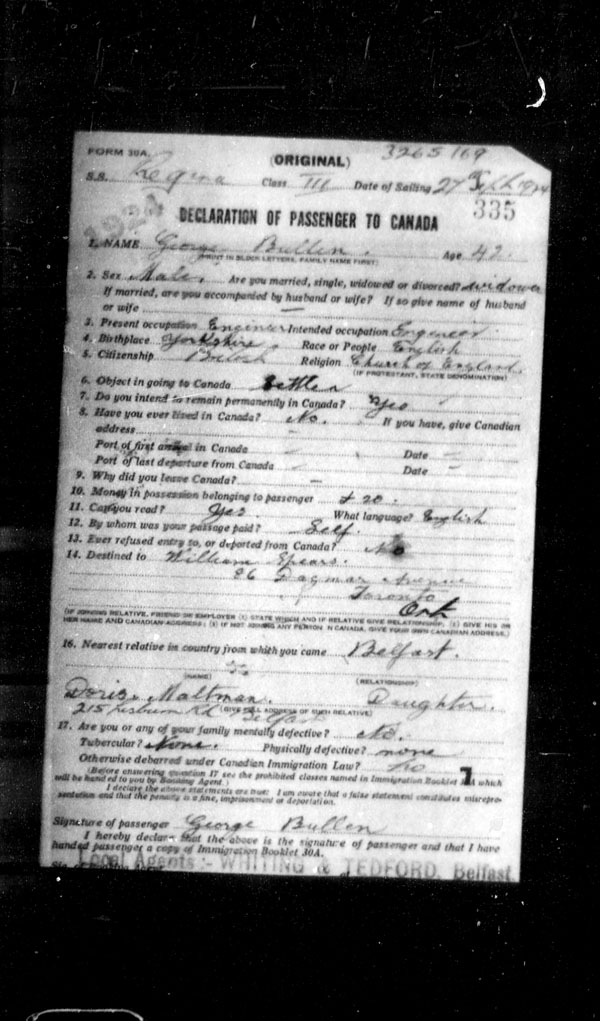 FORM 30A. (ORIGINAL) 3265 169
S.S. Regina Class III Date of Sailing 27th Sept 1924
1924 335
DECLARATION OF PASSENGER TO CANADA
1. NAME George Bullen. Age 42.
(PRINT IN BLOCK LETTERS, FAMILY NAME FIRST)
2. Sex Male. Are you married, single, widowed or divorced? Widower
If married, are you accompanied by husband or wife? If so give name of husband
or wife —
3. Present occupation Engineer Intended occupation Engineer.
4. Birthplace Yorkshire. Race or People English
5. Citizenship British Religion Church of England.
(IF PROTESTANT, STATE DENOMINATION)
6. Object in going to Canada Settler
7. Do you intend to remain permanently in Canada? Yes
8. Have you ever lived in Canada? No. If you have, give Canadian
address —
Port of first arrival in Canada — Date —
Port of last departure from Canada — Date —
9. Why did you leave Canada? —
10. Money in possession belonging to passenger £20.
11. Can you read? Yes. What language? English
12. By whom was your passage paid? Self.
13. Ever refused entry to, or deported from Canada? No
14. Destined to William Spears.
Dagmar Avenue
Toronto
Ont
(IF JOINING RELATIVE, FRIEND OR EMPLOYER (1) STATE WHICH AND IF RELATIVE GIVE RELATIONSHIP: (2) GIVE HIS OR
HER NAME AND CANADIAN ADDRESS: (3) IF NOT JOINING ANY PERSON IN CANADA, GIVE YOUR OWN CANADIAN ADDRESS.)
16. Nearest relative in country from which you came Belfast.
(NAME) (RELATIONSHIP)
Doris Maltman. Daughter.
215 Lisburn Rd Belfast (GIVE FULL ADDRESS OF SUCH RELATIVE)
17. Are you or any of your family mentally defective? No.
Tubercular? None. Physically defective? none
Otherwise debarred under Canadian Immigration Law? no
(Before answering question 17 see the prohibited classes named in Immigration Booklet A which
will be handed to you by Booking Agent)
I declare the above statements are true: I am aware that a false statement constitutes misrepre-
sentation and that the penalty is a fine, imprisonment or deportation.
Signature of passenger George Bullen
I hereby declare that the above is the signature of passenger and that I have
handed passenger a copy of Immigration Booklet 30A.
Local Agents:- WHITING & TEDFORD, Belfast